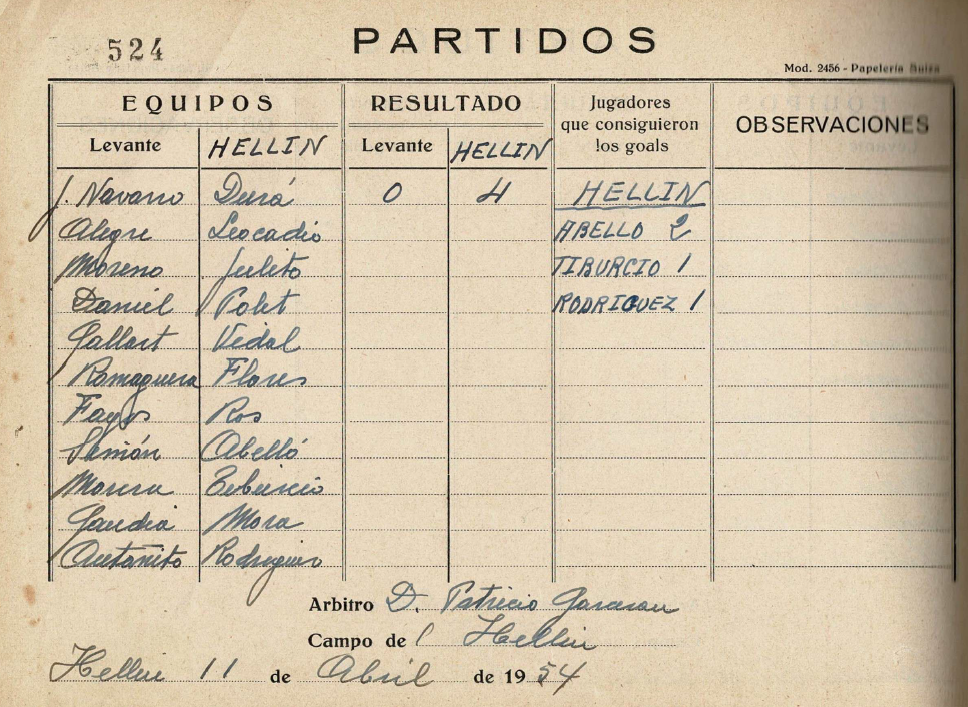 524 PARTIDOS
Mod. 2456 - Papelería
EQUIPOS RESULTADO Jugadores que consiguieron los goals OBSERVACIONES
Levante HELLIN Levante HELLIN
J. Navarro Durá 0 4 HELLIN
Alegre Leocadio ABELLO 2
Moreno Julito TIBURCIO 1
Daniel Polet RODRIGUEZ 1
Gallart Vidal
Romaguera Flores
Fayos Ros
Simón Abelló
Morera Tiburcio
Gandia Mora
Antoñito Rodriguez
Arbitro D. Patricio
Campo del Hellin
Hellin 11 de Abril de 1954